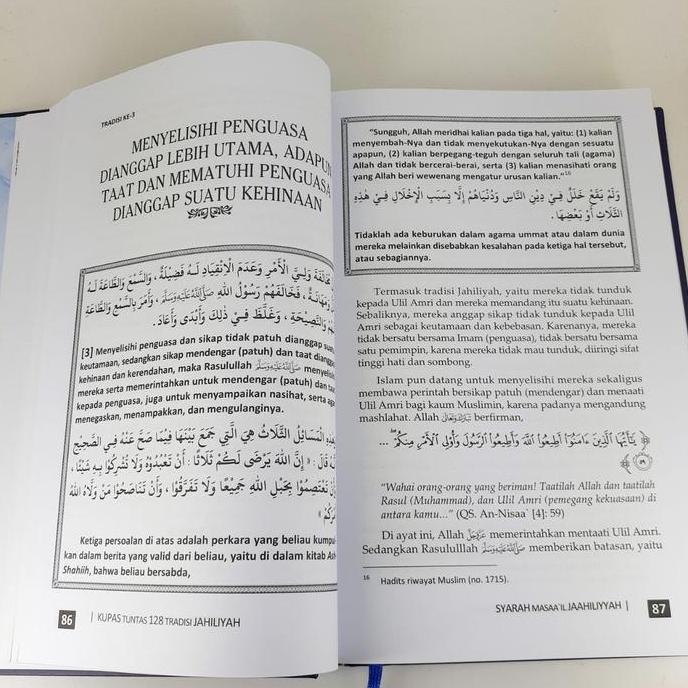 TRADISI KE-3
MENYELISIHI PENGUASA
DIANGGAP LEBIH UTAMA, ADAPUN
TAAT DAN MEMATUHI PENGUASA
DIANGGAP SUATU KEHINAAN
مُخَالَفَةُ وَلِيِّ الْأَمْرِ وَعَدَمَ الْاِنْقِيَادِ لَهُ فَضِيْلَةٌ ، وَالسَّمْعَ وَالطَّاعَةَ لَهُ
وَمَهَانَةٌ ، فَخَالَفَهُمْ رَسُوْلُ اللهِ صَلَّى اللَّهُ عَلَيْهِ وَسَلَّمَ ، وَأَمَرَ بِالسَّمْعِ وَالطَّاعَةِ
لَهُمْ وَالنَّصِيْحَةِ ، وَغَلَّظَ فِيْ ذَلِكَ وَأَبْدَى وَأَعَادَ .
[3] Menyelisihi penguasa dan sikap tidak patuh dianggap
keutamaan, sedangkan sikap mendengar (patuh) dan taat
kehinaan dan kerendahan, maka Rasulullah صَلَّى اللَّهُ عَلَيْهِ وَسَلَّمَ
mereka serta memerintahkan untuk mendengar (patuh) dan
kepada penguasa, juga untuk menyampaikan nasihat, serta
menegaskan, menampakkan, dan mengulanginya.
الْمَسَائِلُ الثَّلَاثُ هِيَ الَّتِيْ جَمَعَ بَيْنَهَا فِيْمَا صَحَّ عَنْهُ فِي الصَّحِيْحِ
قَالَ : « إِنَّ اللهَ يَرْضَى لَكُمْ ثَلَاثًا : أَنْ تَعْبُدُوْهُ وَلَا تُشْرِكُوْا بِهِ شَيْئًا ،
تَعْتَصِمُوْا بِحَبْلِ اللهِ جَمِيْعًا وَلَا تَفَرَّقُوْا ، وَأَنْ تَنَاصَحُوْا مَنْ وَلَّاهُ اللهُ
Ketiga persoalan di atas adalah perkara yang beliau kumpul-
kan dalam berita yang valid dari beliau, yaitu di dalam kitab Ash-
Shahiih, bahwa beliau bersabda,
86 | KUPAS TUNTAS 128 TRADISI JAHILIYAH
"Sungguh, Allah meridhai kalian pada tiga hal, yaitu: (1) kalian
menyembah-Nya dan tidak menyekutukan-Nya dengan sesuatu
apapun, (2) kalian berpegang-teguh dengan seluruh tali (agama)
Allah dan tidak bercerai-berai, serta (3) kalian menasihati orang
yang Allah beri wewenang mengatur urusan kalian."16
وَلَمْ يَقَعْ خَلَلٌ فِيْ دِيْنِ النَّاسِ وَدُنْيَاهُمْ إِلَّا بِسَبَبِ الْإِخْلَالِ فِيْ هٰذِهِ
الثَّلَاثِ أَوْ بَعْضِهَا .
Tidaklah ada keburukan dalam agama ummat atau dalam dunia
mereka melainkan disebabkan kesalahan pada ketiga hal tersebut,
atau sebagiannya.
Termasuk tradisi Jahiliyah, yaitu mereka tidak tunduk
kepada Ulil Amri dan mereka memandang itu suatu kehinaan.
Sebaliknya, mereka anggap sikap tidak tunduk kepada Ulil
Amri sebagai keutamaan dan kebebasan. Karenanya, mereka
tidak bersatu bersama Imam (penguasa), tidak bersatu bersama
satu pemimpin, karena mereka tidak mau tunduk, diiringi sifat
tinggi hati dan sombong.
Islam pun datang untuk menyelisihi mereka sekaligus
membawa perintah bersikap patuh (mendengar) dan menaati
Ulil Amri bagi kaum Muslimin, karena padanya mengandung
mashlahat. Allah تَبَارَكَ وَتَعَالَى berfirman,
﴿ يَٰٓأَيُّهَا ٱلَّذِينَ ءَامَنُوٓا۟ أَطِيعُوا۟ ٱللَّهَ وَأَطِيعُوا۟ ٱلرَّسُولَ وَأُو۟لِى ٱلْأَمْرِ مِنكُمْ ۖ ...
٥٩ ﴾
"Wahai orang-orang yang beriman! Taatilah Allah dan taatilah
Rasul (Muhammad), dan Ulil Amri (pemegang kekuasaan) di
antara kamu..." (QS. An-Nisaa` [4]: 59)
Di ayat ini, Allah عَزَّوَجَلَّ memerintahkan mentaati Ulil Amri.
Sedangkan Rasulullah صَلَّى اللَّهُ عَلَيْهِ وَسَلَّمَ memberikan batasan, yaitu
16 Hadits riwayat Muslim (no. 1715).
SYARAH MASAA`IL JAAHILIYYAH | 87